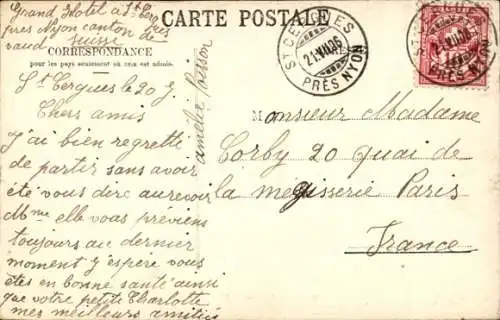 Grand Hotel à St Cergues
près Nyon canton près
vaud Suisse
CARTE POSTALE
CORRESPONDANCE
pour les pays seulement où cela est admis.
ST CERGUES
21.VII.06
PRÈS NYON
St Cergues le 20 J.
Chers amis
j'ai bien regretté
de partir sans avoir
été vous dire au revoir
Mme elle vous préviens
toujours au dernier
moment j'espère vous
êtes en bonne santé ainsi
que votre petite Charlotte
mes meilleurs amitiés
amélie
Monsieur Madame
Corby 20 quai de
la mégisserie Paris
France